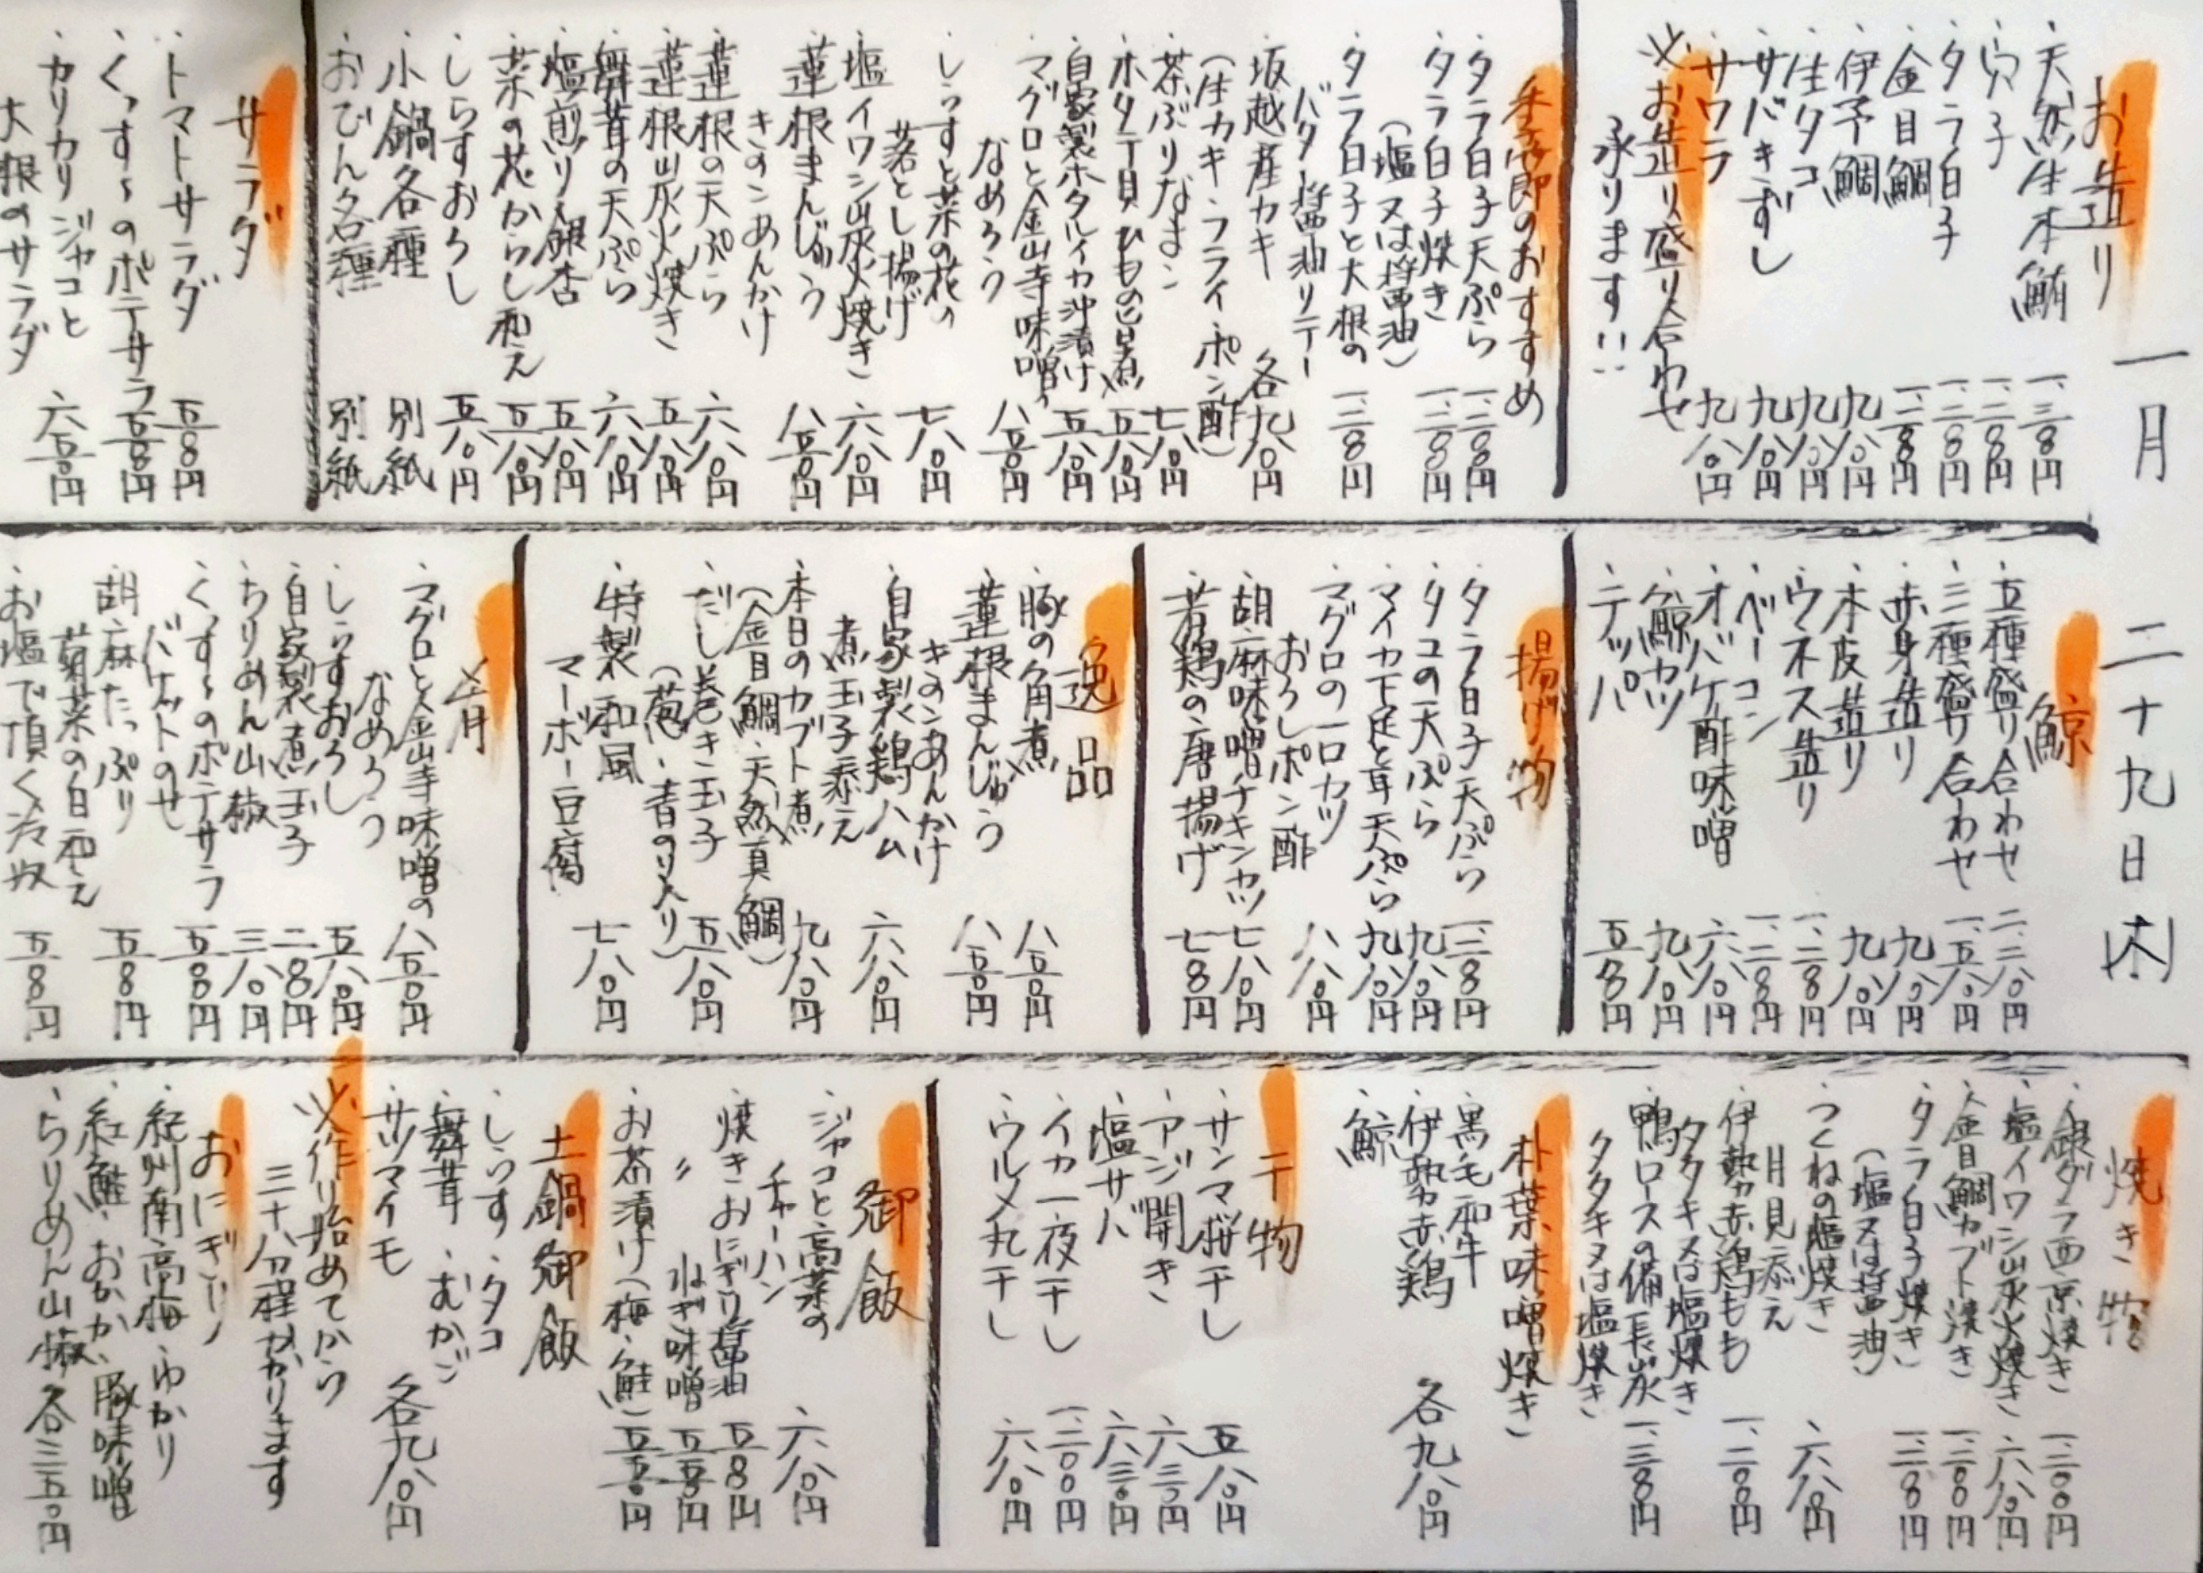 一月 二十九日(木)
お造り
・天然生本鮪 一、三八〇円
・穴子 一、二八〇円
・タラ白子 一、二八〇円
・金目鯛 一、二八〇円
・伊予鯛 九八〇円
・生タコ 九八〇円
・サバきずし 九八〇円
・サワラ 九八〇円
※お造り盛り合わせ
承ります!!
季節のおすすめ
・タラ白子天ぷら 一、二八〇円
・タラ白子焼き 一、二八〇円
(塩又は醤油)
・タラ白子と大根の
バター醤油ソテー 一、二八〇円
・坂越産カキ 各九八〇円
(生カキ・フライ・ポン酢)
・茶ぶりなまこ 七八〇円
・ホタテ貝ひもの旨煮 五八〇円
・自家製ホタルイカ沖漬け 五八〇円
・マグロと金山寺味噌の
なめろう 八五〇円
・しらすと菜の花の
落とし揚げ 七八〇円
・塩イワシ炭火焼き 六八〇円
・蓮根まんじゅう
きのこあんかけ 八五〇円
・蓮根の天ぷら 六八〇円
・蓮根炭火焼き 五八〇円
・舞茸の天ぷら 六八〇円
・塩煎り銀杏 五八〇円
・菜の花からし和え 五八〇円
・しらすおろし 五八〇円
・小鍋各種 別紙
・おでん各種 別紙
サラダ
・トマトサラダ 五八〇円
・くっすぅのポテサラ 五八〇円
・カリカリジャコと
大根のサラダ 六五〇円
鯨
・五種盛り合わせ 二、二八〇円
・三種盛り合わせ 一、五八〇円
・赤身造り 九八〇円
・本皮造り 九八〇円
・ウネス造り 一、二八〇円
・ベーコン 一、二八〇円
・オバケ酢味噌 六八〇円
・鯨カツ 九八〇円
・テッパ 五八〇円
揚げ物
・タラ白子天ぷら 一、二八〇円
・タコの天ぷら 九八〇円
・マイカ下足と耳天ぷら 九八〇円
・マグロの一口カツ
おろしポン酢 八八〇円
・胡麻味噌チキンカツ 七八〇円
・若鶏の唐揚げ 七八〇円
逸品
・豚の角煮 八五〇円
・蓮根まんじゅう
きのこあんかけ 八五〇円
・自家製鶏ハム
煮玉子添え 六八〇円
・本日のカブト煮 九八〇円
(金目鯛・天然真鯛)
・だし巻き玉子 五八〇円
(葱・青のり入り)
・特製和風
マーボー豆腐 七八〇円
・マグロと金山寺味噌の
なめろう 八五〇円
・しらすおろし 五八〇円
・自家製煮玉子 二八〇円
・ちりめん山椒 三八〇円
・くっすぅのポテサラ
バケットのせ 五八〇円
・胡麻たっぷり
菊菜の白和え 五八〇円
・お塩で頂く冷奴 五八〇円
焼き物
・銀ダラ西京焼き 一、三〇〇円
・塩イワシ炭火焼き 六八〇円
・金目鯛カブト焼き 一、三八〇円
・タラ白子焼き 一、二八〇円
(塩又は醤油)
・つくねの塩焼き
月見添え 六八〇円
・伊勢赤鶏もも
タタキ又は塩焼き 一、二八〇円
・鴨ロースの備長炭
タタキ又は塩焼き 一、三八〇円
朴葉味噌焼き
・黒毛和牛
・伊勢赤鶏
・鯨 各九八〇円
干物
・サンマ桜干し 五八〇円
・アジ開き 六三〇円
・塩サバ 六三〇円
・イカ一夜干し 一、三〇〇円
・ウルメ丸干し 六八〇円
御飯
・ジャコと高菜の
チャーハン 六八〇円
・焼きおにぎり醤油 五八〇円
・〃 ねぎ味噌 五五〇円
・お茶漬け(梅・鮭) 五五〇円
土鍋御飯
・しらす・タコ
・舞茸・むかご
・サツマイモ 各九八〇円
※作り始めてから
三十八分程かかります
おにぎり
・紀州南高梅・ゆかり
・紅鮭・おかか・豚味噌
・ちりめん山椒 各三五〇円